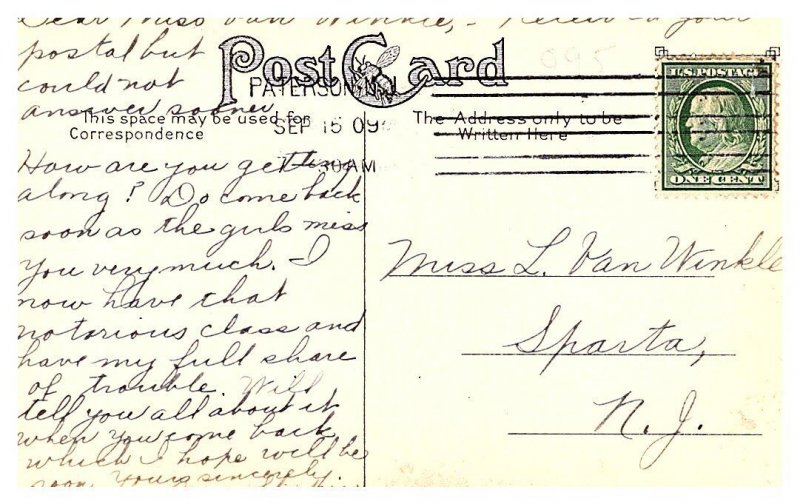 Dear Miss Van Winkle, - Received your
postal but
could not
answer sooner.
How are you getting
along? Do come back
soon as the girls miss
you very much. I
now have that
notorious class and
have my full share
of trouble. Will
tell you all about it
when you come back
which I hope will be
soon. Yours sincerely.
Post Card
PATERSON, N.J.
SEP 15 09
30 AM
This space may be used for
Correspondence
The Address only to be
Written Here
095
U.S. POSTAGE
ONE CENT
Miss L. Van Winkle
Sparta,
N. J.